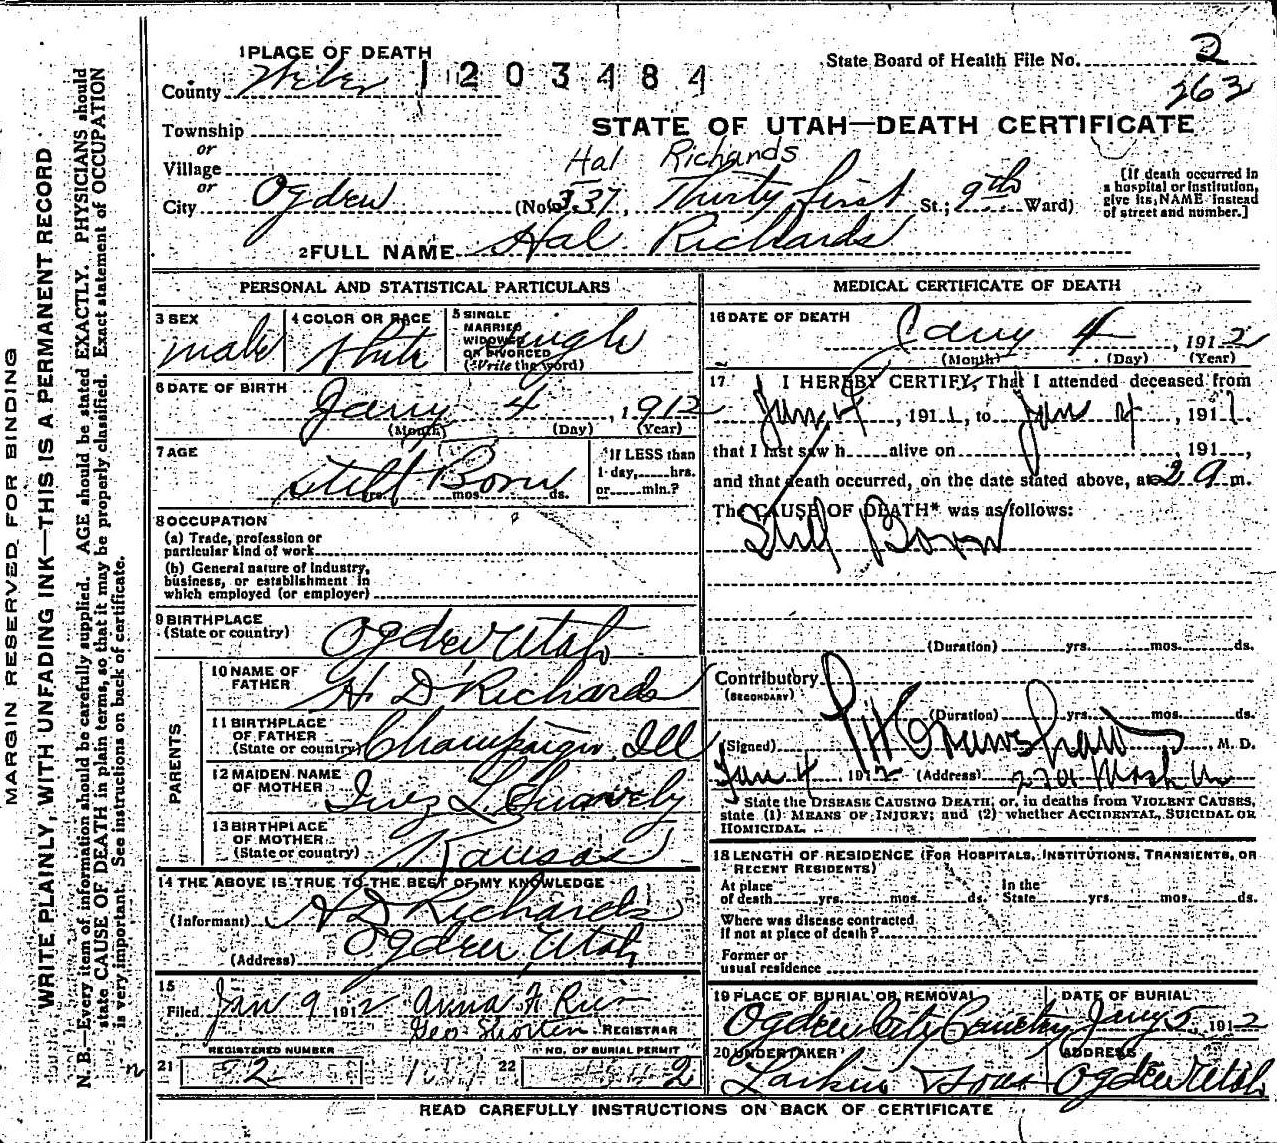 MARGIN RESERVED FOR BINDING
WRITE PLAINLY, WITH UNFADING INK—THIS IS A PERMANENT RECORD
N. B.—Every item of information should be carefully supplied. AGE should be stated EXACTLY. PHYSICIANS should
state CAUSE OF DEATH in plain terms, so that it may be properly classified. Exact statement of OCCUPATION
is very important. See instructions on back of certificate.
1 PLACE OF DEATH
County Weber 1203484
State Board of Health File No. 2
263
Township
or
Village
or
City Ogden
STATE OF UTAH—DEATH CERTIFICATE
Hal Richards
(No. 337, Thirty first St.; 9th Ward)
[If death occurred in
a hospital or institution,
give its NAME instead
of street and number.]
2 FULL NAME Hal Richards
PERSONAL AND STATISTICAL PARTICULARS
3 SEX
male
4 COLOR OR RACE
White
5 SINGLE
MARRIED
WIDOWED
OR DIVORCED
(Write the word)
Single
6 DATE OF BIRTH
Jany 4, 1912
(Month) (Day) (Year)
7 AGE
Still Born
yrs. mos. ds.
If LESS than
1 day, hrs.
or min.?
8 OCCUPATION
(a) Trade, profession or
particular kind of work
(b) General nature of industry,
business, or establishment in
which employed (or employer)
9 BIRTHPLACE
(State or country) Ogden Utah
PARENTS
10 NAME OF
FATHER H D Richards
11 BIRTHPLACE
OF FATHER
(State or country) Champaign, Ill
12 MAIDEN NAME
OF MOTHER Inez L. Snavely
13 BIRTHPLACE
OF MOTHER
(State or country) Kansas
14 THE ABOVE IS TRUE TO THE BEST OF MY KNOWLEDGE
(Informant) H D Richards
(Address) Ogden, Utah
15
Filed Jan 9 1912 Anna
Geo Shorten REGISTRAR
REGISTERED NUMBER
21 2
NO. OF BURIAL PERMIT
22 2
MEDICAL CERTIFICATE OF DEATH
16 DATE OF DEATH
Jany 4, 1912
(Month) (Day) (Year)
17 I HEREBY CERTIFY, That I attended deceased from
Jan 4, 1911, to Jan 4, 1911,
that I last saw h alive on , 191 ,
and that death occurred, on the date stated above, at 2 a m.
The CAUSE OF DEATH* was as follows:
Still Born
(Duration) yrs. mos. ds.
Contributory
(SECONDARY)
(Duration) yrs. mos. ds.
(Signed) M. D.
Jan 4 1912 (Address) 2201 Wash
State the DISEASE CAUSING DEATH, or, in deaths from VIOLENT CAUSES,
state (1) MEANS OF INJURY; and (2) whether ACCIDENTAL, SUICIDAL OR
HOMICIDAL.
18 LENGTH OF RESIDENCE (FOR HOSPITALS, INSTITUTIONS, TRANSIENTS, OR
RECENT RESIDENTS)
At place
of death yrs. mos. ds.
In the
State yrs. mos. ds.
Where was disease contracted
if not at place of death?
Former or
usual residence
19 PLACE OF BURIAL OR REMOVAL
Ogden City Cemetery
DATE OF BURIAL
Jany 5 1912
20 UNDERTAKER
Larkin & Sons
ADDRESS
Ogden Utah
READ CAREFULLY INSTRUCTIONS ON BACK OF CERTIFICATE